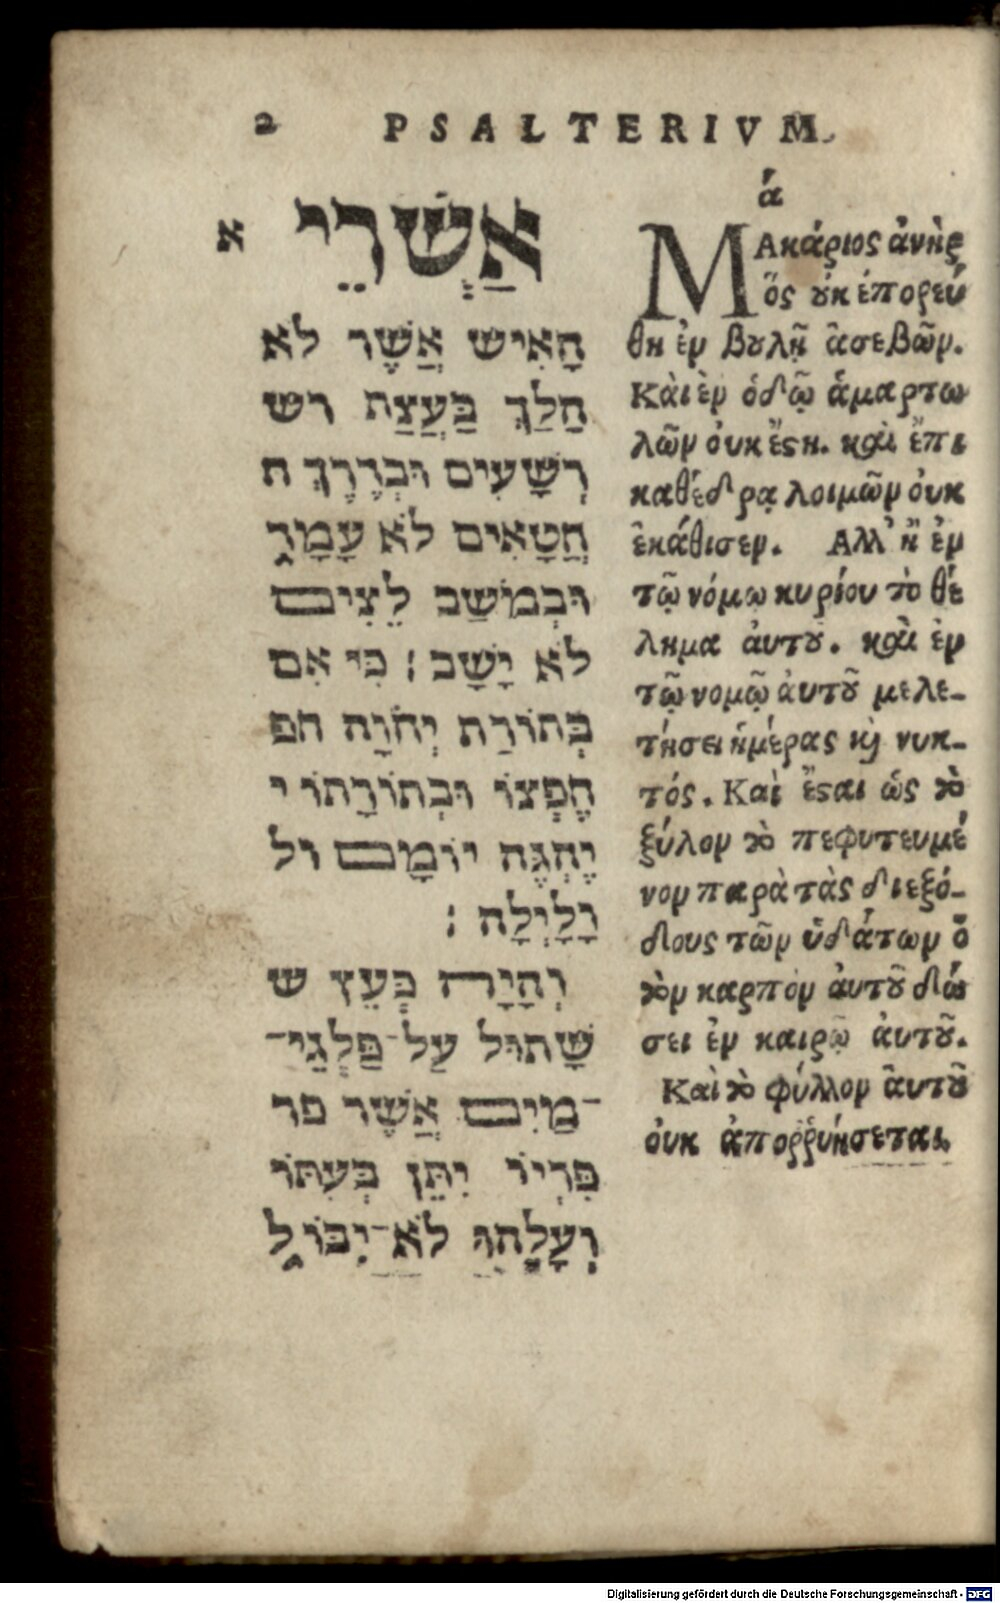 2 PSALTERIVM.
א
אַשְׁרֵי
הָאִישׁ אֲשֶׁר לֹא
הָלַךְ בַּעֲצַת רש
רְשָׁעִים וּבְדֶרֶךְ ח
חֲטָּאִים לֹא עָמָד
וּבְמוֹשַׁב לֵצִים
לֹא יָשָׁב׃ כִּי אִם
בְּתוֹרַת יְהֹוָה חפ
חֶפְצוֹ וּבְתוֹרָתוֹ י
יֶהְגֶּה יוֹמָם ול
וָלָיְלָה׃
וְהָיָה כְּעֵץ ש
שָׁתוּל עַל־פַּלְגֵי־
־מַיִם אֲשֶׁר פר
פִּרְיוֹ יִתֵּן בְּעִתּוֹ
וְעָלֵהוּ לֹא־יִבּוֹל
ά
ΜΑκάριος ἀνὴρ
ὅς ȣκ ἐπορεύ
θη ἐν βȣλῇ ἀσεβῶν.
Κὰι ἐν ὁδῷ ἁμαρτω
λῶν ὀυκ ἔϛη. κὰι ἔπι
καθέδρᾳ λοιμῶν ὀυκ
ἐκάθισεν. Αλλ' ἢ ἐν
τῷ νόμῳ κυρίου τὸ θέ
λημα ἀυτȣ. κὰι ἐν
τῷ νομῷ ἀυτȣ͂ μελε-
τήσει ἡμέρας ϗ νυκ-
τός. Καὶ ἔϛαι ὡς τὸ
ξύλον τὸ πεφυτευμέ
νον παρὰ τὰς διεξό-
δους τῶν ὑδάτων ὃ
τὸν καρπὸν ἀυτȣ͂ δώ
σει ἐν καιρῷ ἀυτȣ͂.
Καὶ τὸ φύλλον ἀυτȣ͂
ὀυκ ἀποῤῥυήσεται.
Digitalisierung gefördert durch die Deutsche Forschungsgemeinschaft - DFG